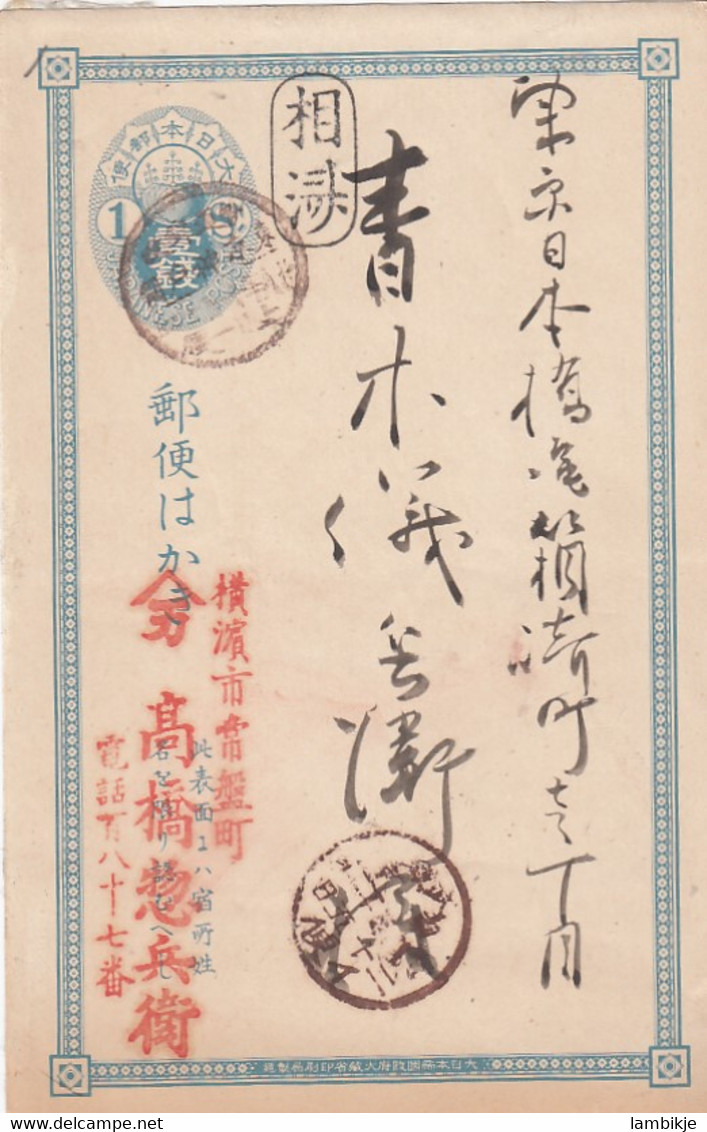 東京日本橋區箱崎町壱丁目
青木儀兵衛
相濟
大日本郵便
1 S
壹錢
JAPANESE POST
郵便はかき
横濱市常盤町
髙橋惣兵衛
電話百八十七番
此表面ニハ宿所姓
名を限り認むへし
大日本帝國政府大藏省印刷局製造
lambikje